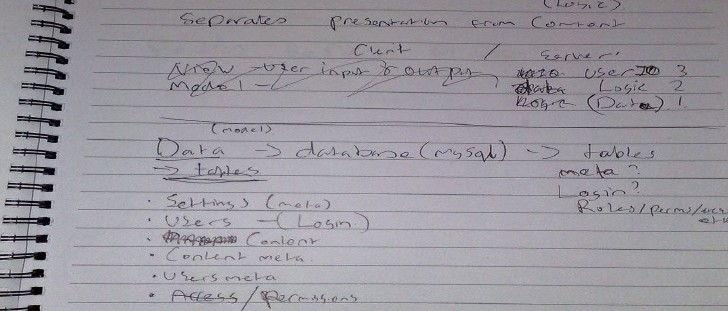 (Logic)
Separates presentation from Content
Client / Server:
View - User input & output User IO 3
Model - Logic 2
(Data) 1.
(model)
Data -> database (mysql) -> tables
-> tables meta?
Login?
Roles/perms/
· Settings (meta)
· Users - (Login)
· Content
· Content meta
· Users meta
· Access / Permissions